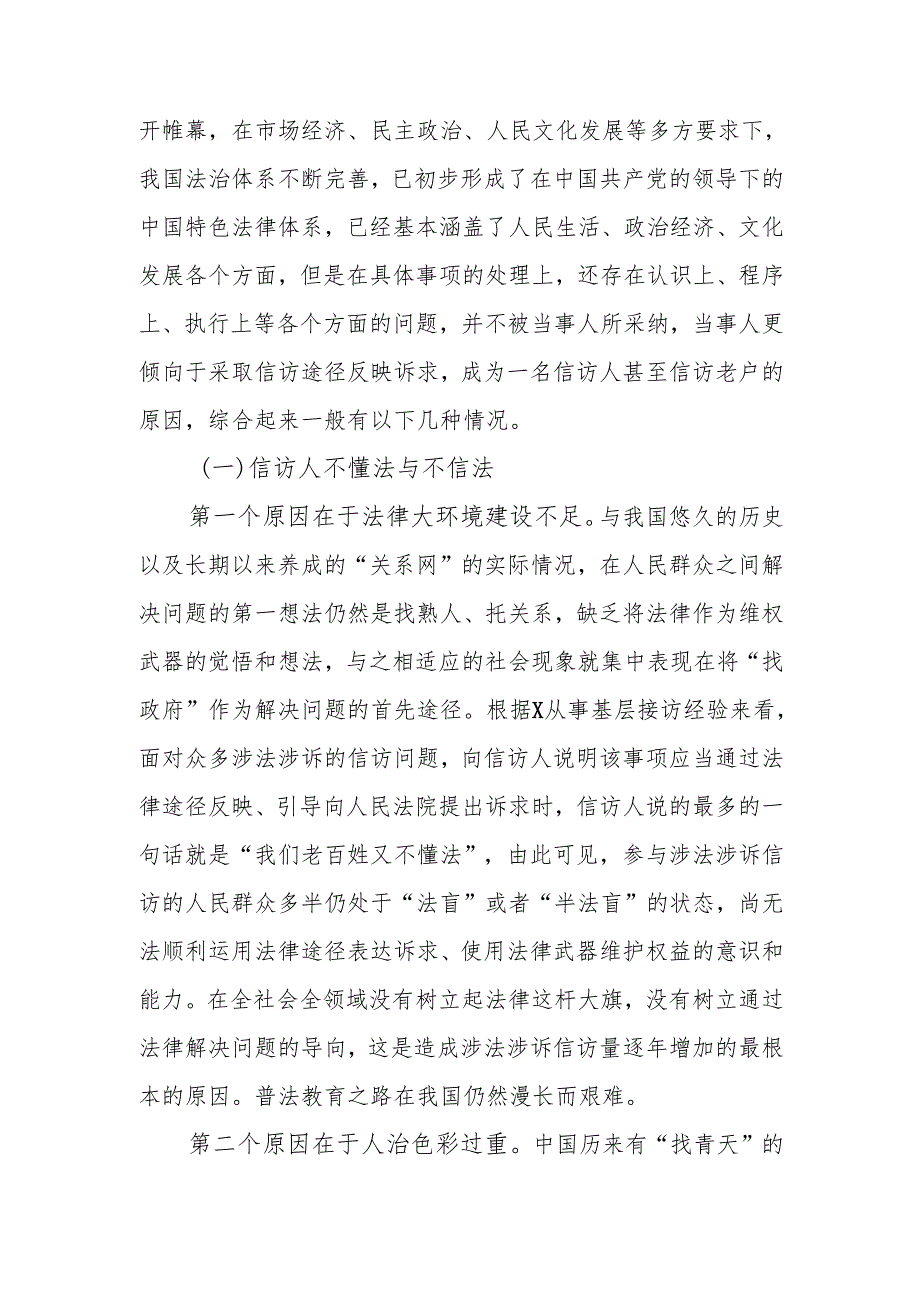 开帷幕，在市场经济、民主政治、人民文化发展等多方要求下，
我国法治体系不断完善，已初步形成了在中国共产党的领导下的
中国特色法律体系，已经基本涵盖了人民生活、政治经济、文化
发展各个方面，但是在具体事项的处理上，还存在认识上、程序
上、执行上等各个方面的问题，并不被当事人所采纳，当事人更
倾向于采取信访途径反映诉求，成为一名信访人甚至信访老户的
原因，综合起来一般有以下几种情况。
(一)信访人不懂法与不信法
第一个原因在于法律大环境建设不足。与我国悠久的历史
以及长期以来养成的“关系网”的实际情况，在人民群众之间解
决问题的第一想法仍然是找熟人、托关系，缺乏将法律作为维权
武器的觉悟和想法，与之相适应的社会现象就集中表现在将“找
政府”作为解决问题的首先途径。根据X从事基层接访经验来看，
面对众多涉法涉诉的信访问题，向信访人说明该事项应当通过法
律途径反映、引导向人民法院提出诉求时，信访人说的最多的一
句话就是“我们老百姓又不懂法”，由此可见，参与涉法涉诉信
访的人民群众多半仍处于“法盲”或者“半法盲”的状态，尚无
法顺利运用法律途径表达诉求、使用法律武器维护权益的意识和
能力。在全社会全领域没有树立起法律这杆大旗，没有树立通过
法律解决问题的导向，这是造成涉法涉诉信访量逐年增加的最根
本的原因。普法教育之路在我国仍然漫长而艰难。
第二个原因在于人治色彩过重。中国历来有“找青天”的